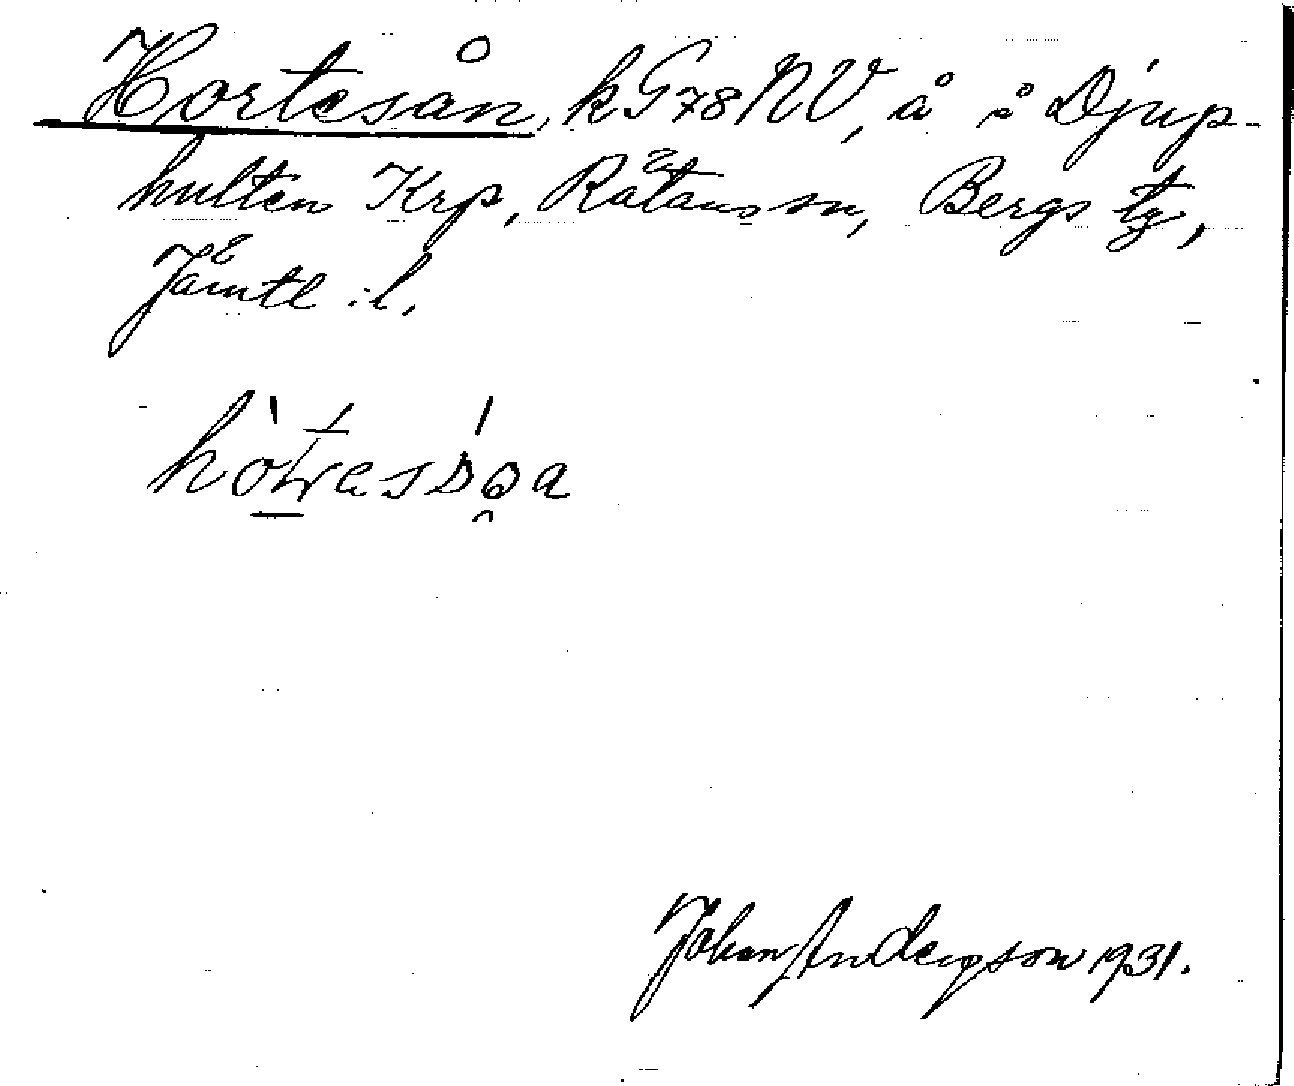 Hortesån, k G 78 NV, å i Djup-
hulten Krp, Rätans sn, Bergs tg,
Jämtl :l.
Johan Anderson 1931.